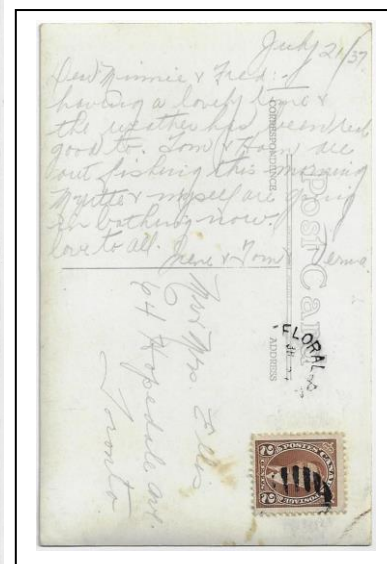 July 21/37
Dear Minnie & Fred:-
having a lovely time &
the weather has been real
good to. Tom & are
out fishing this morning
Myrtle & myself are going
in bathing now.
love to all. Irene & Tom & Verna.
Post Card
CORRESPONDENCE
ADDRESS
Mr & Mrs Ellis
64 Hopedale Av.
Toronto
FLORAL
POSTES CANADA
2 CENTS 2